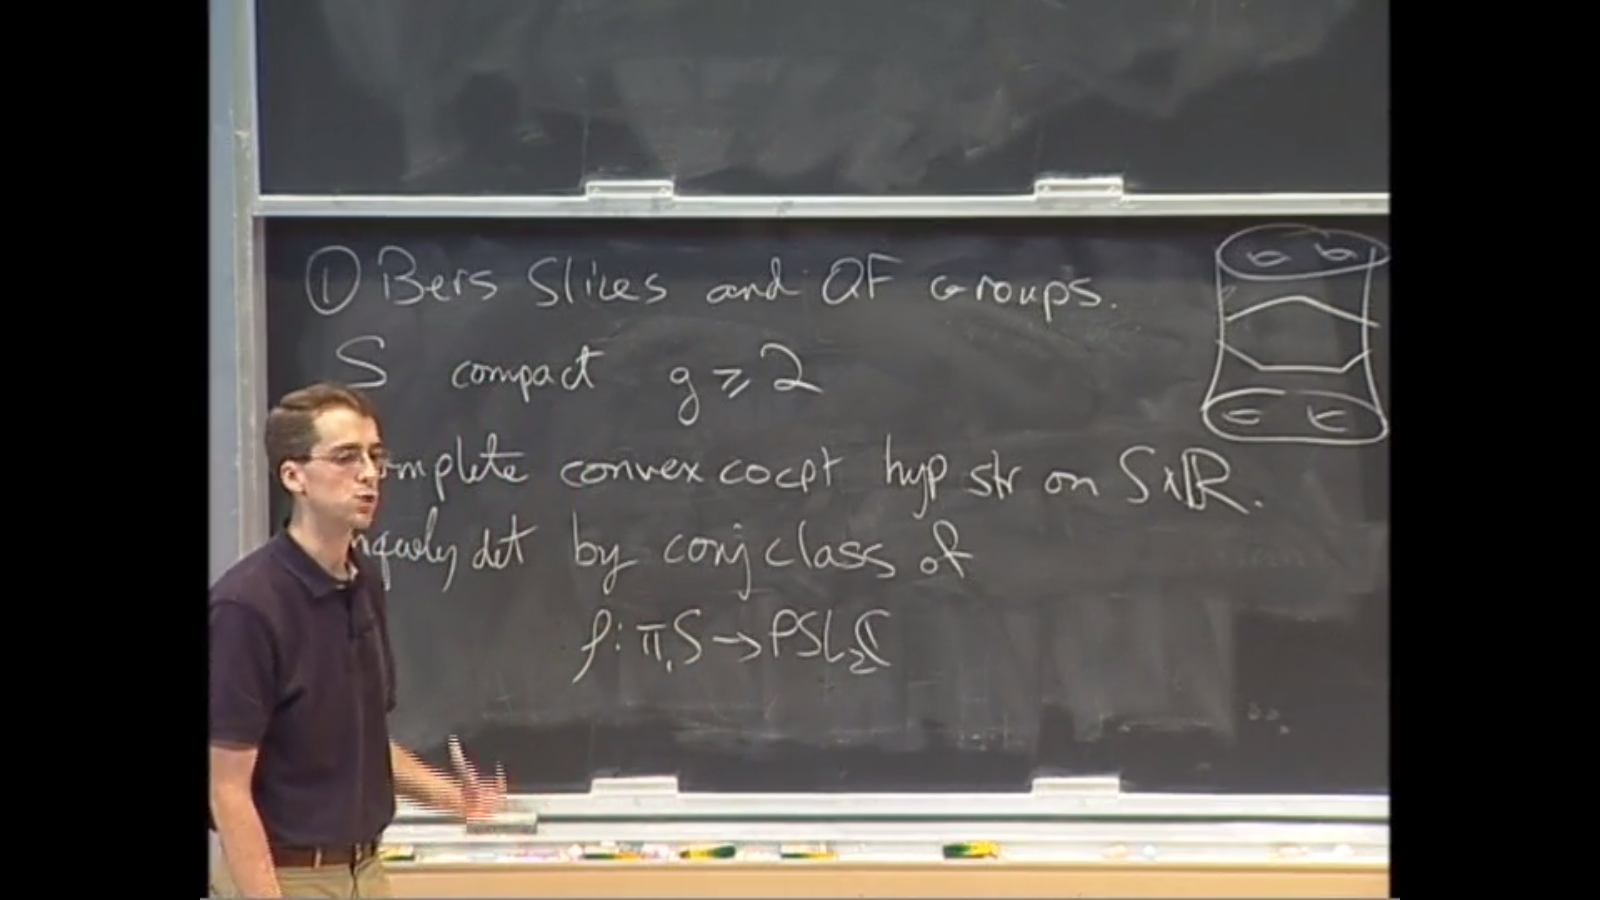 ① Bers Slices and QF Groups.
S compact g ≥ 2
omplete convex cocpt hyp str on S×ℝ.
niquely det by conj class of
ρ: π₁S → PSL₂ℂ